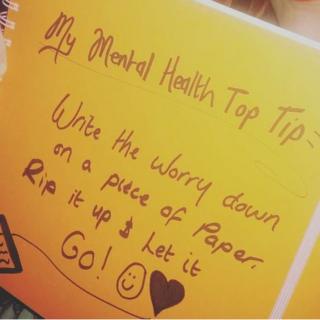 My Mental Health Top Tip-
Write the worry down
on a piece of Paper.
Rip it up & Let it
GO!